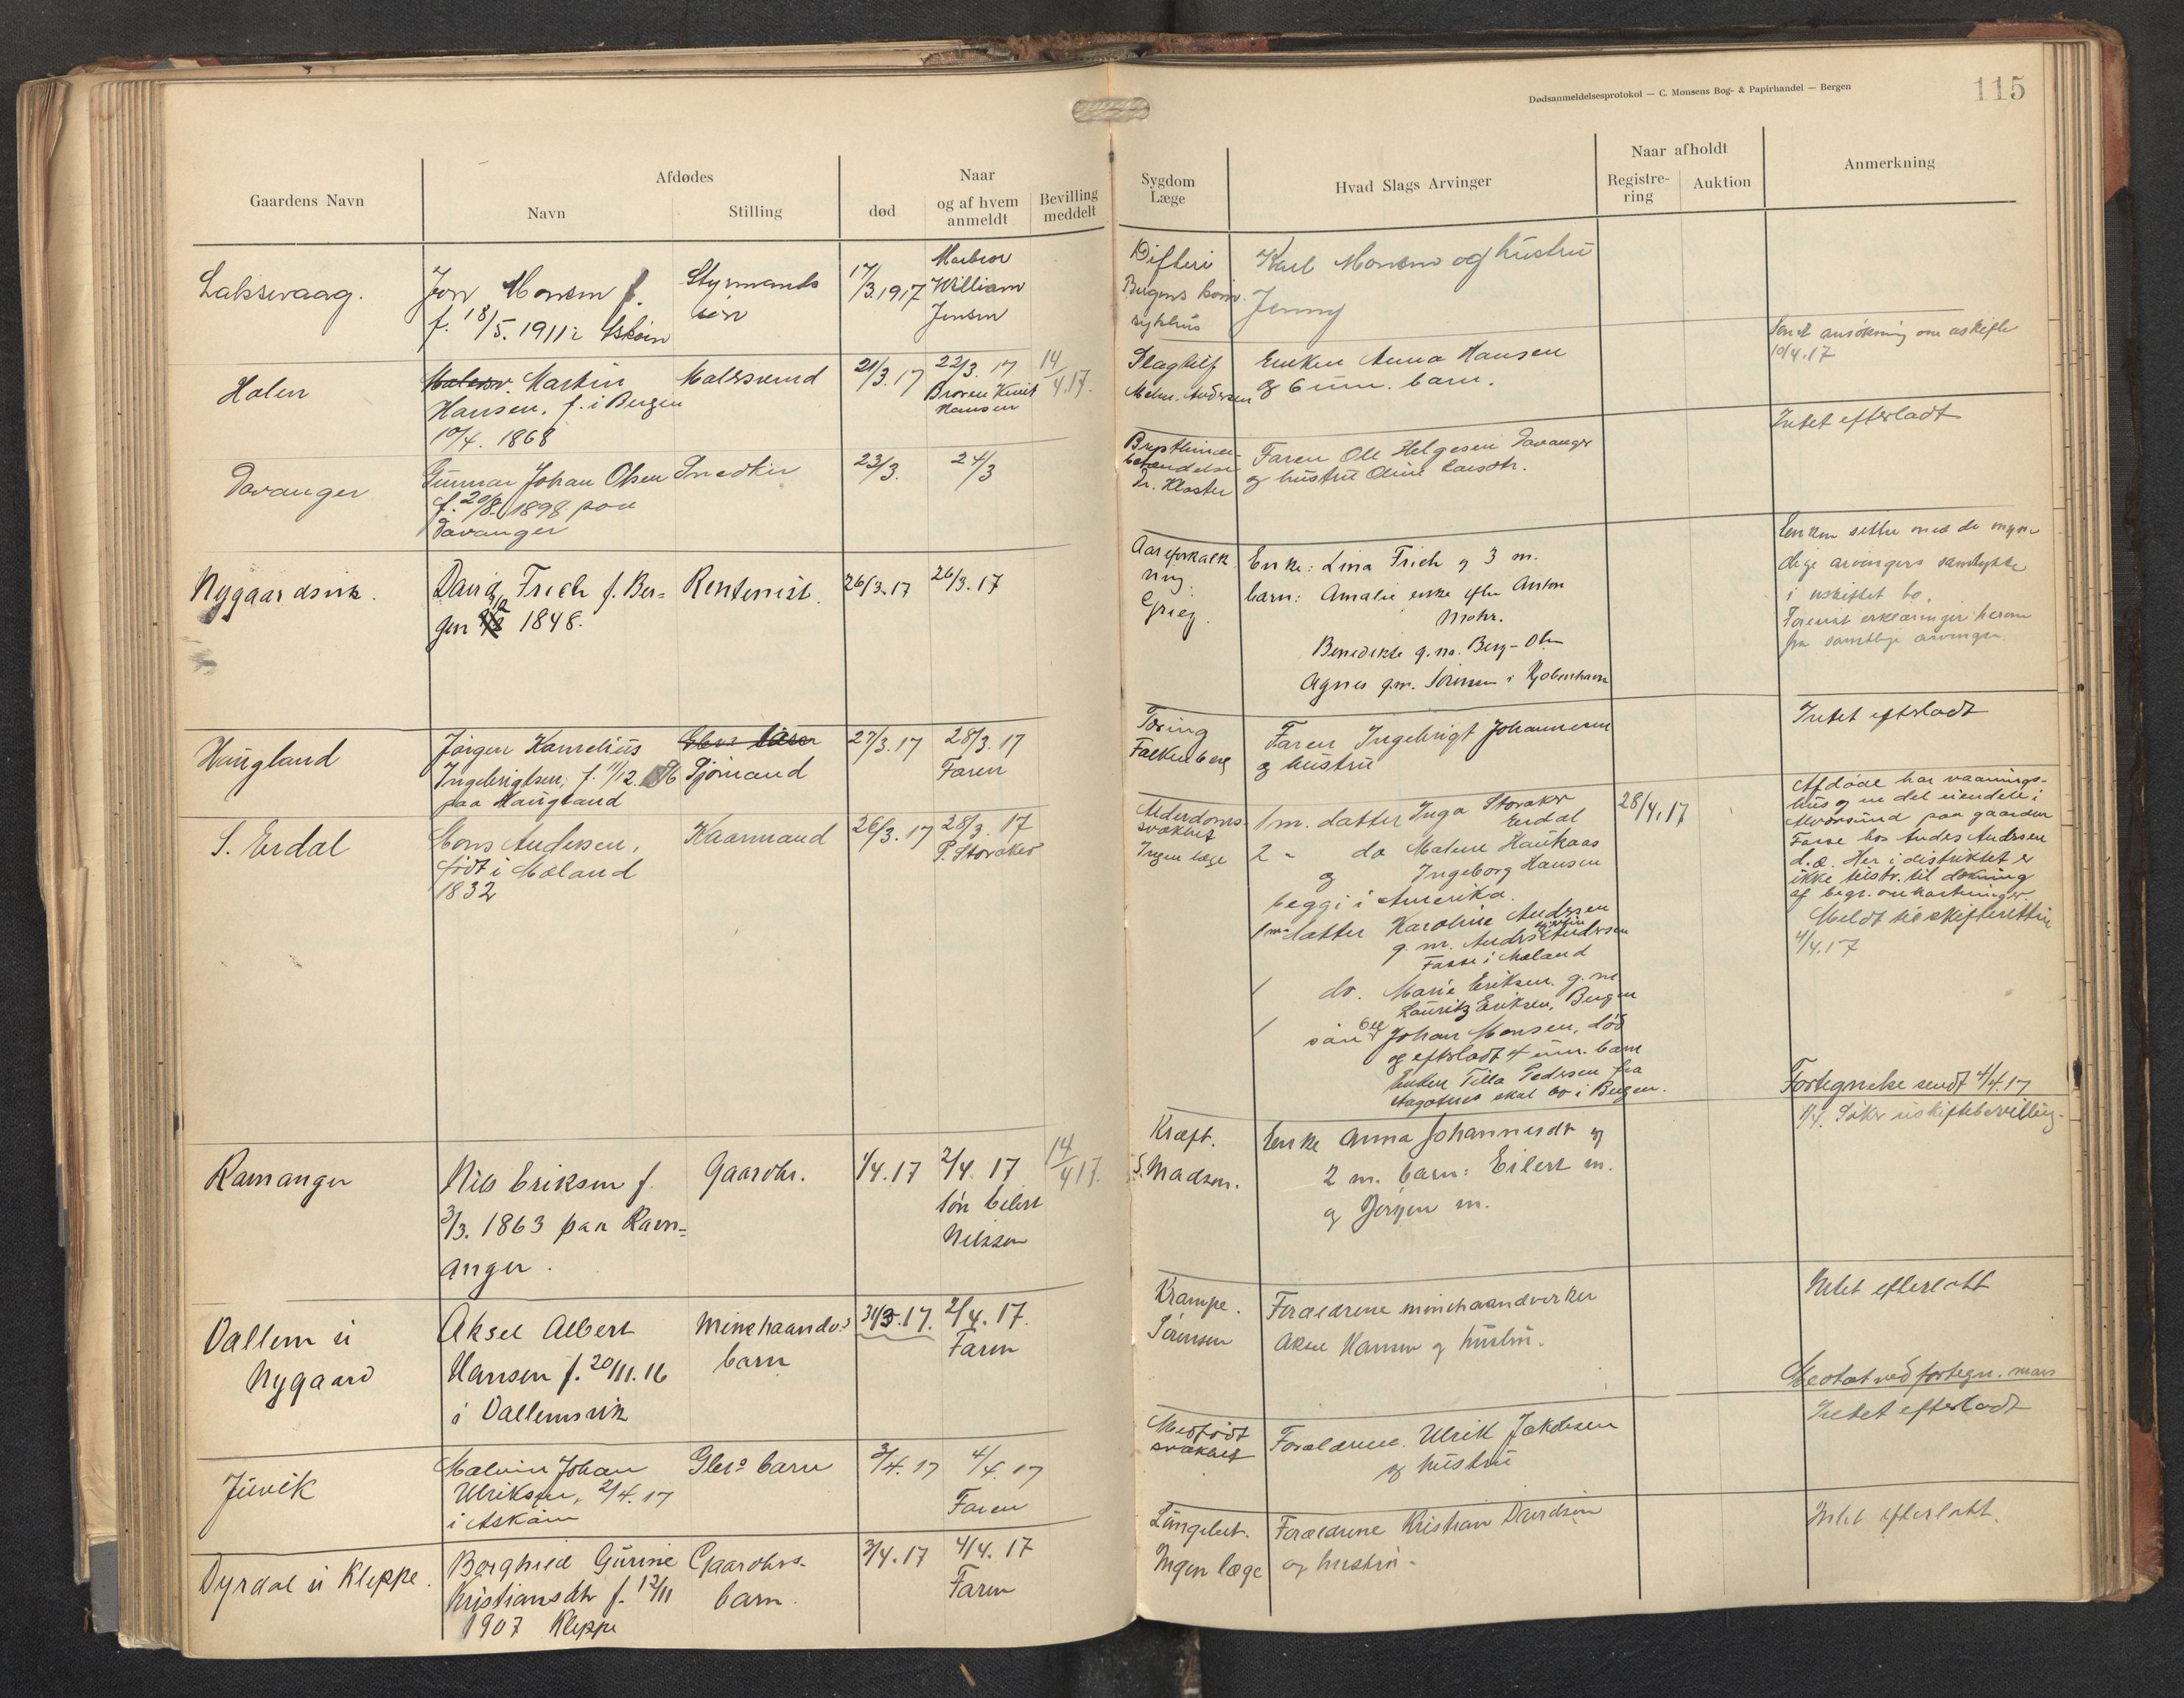 Dødsanmeldelsesprotokol — C. Monsens Bog- & Papirhandel — Bergen
115
Gaardens Navn
Afdødes
Navn
Stilling
Naar
død
og af hvem
anmeldt
Bevilling
meddelt
Sygdom
Læge
Hvad Slags Arvinger
Naar afholdt
Registre-
ring
Auktion
Anmerkning
Laksevaag.
Jon Monsen f.
f. 18/5. 1911 i
Styrmands
søn
17/3.1917
Morbror
William
Jensen
Difteri
Bergens kom.
sykehus
Karl Monsen og hustru
Jenny
Holen
Martin
Hansen, f. i Bergen
10/4. 1868
Malersvend
21/3. 17
22/3. 17
Broren Knut
Hansen
14/4.17.
Slagtilf
Andersen
Enken Anna Hansen
og 6 um. barn.
Sendt ansøkning om uskifte
10/4.17
Davanger
Gunnar Johan Olsen
f. 20/8. 1898 paa
Davanger
Snedker
23/3.
24/3
Brysthinde-
betændelse
Dr. Kloster
Faren Ole Helgesen Davanger
og hustru Oline Larsdtr.
Intet efterladt
Nygaardsvik.
David Frich f. Ber-
gen 1848.
Rentenist.
26/3.17
26/3. 17
Aareforkalk
ning.
Grieg.
Enke: Lina Frich og 3 m.
barn: Amalie enke efter Anton
Mohr.
Benedikte g.m. Berg-Olsen
Agnes g.m. Sørensen i Kjøbenhavn
Enken sitter med de myn
dige arvingers samtykke
i uskiftet bo.
Forevist erklæringer herom
fra samtlige arvinger.
Haugland
Jørgen Kornelius
Ingebrigtsen, f. 11/12.
paa Haugland
Sjømand
27/3.17
28/3. 17
Faren
Tæring
Falkenberg
Faren Ingebrigt Johannesen
og hustru
Intet efterladt
S. Erdal
Mons Andersen,
født i Mæland
1832
Kaarmand
26/3. 17
28/3. 17
P. Storaker
Alderdoms-
svakhet
Ingen læge
1 m. datter Inga Storaker
Erdal
2 - do Malene Haukaas
og Ingeborg Hansen
begge i Amerika.
1 m. datter Karoline Andersen
g. m. Anders Andersen
Fasse i Mæland
1 do. Marie Eriksen g. m.
Lauritz Eriksen, Bergen
1 søn Johan Monsen, død
og efterladt 4 um. barn
Enken Tilla Pedersen fra
skal bo i Bergen.
28/4.17
Afdøde har vaanings-
hus og en del eiendele i
paa gaarden
Fasse hos Anders Andersen
d.æ. Her i distriktet er
ikke til dækning
af begr. omkostninger.
Meldt til skifteretten
4/4.17
Fortegnelse sendt 4/4.17
Ramanger
Nils Eriksen f.
3/3. 1863 paa Ram-
anger.
Gaardbr.
1/4.17
2/4. 17
søn Eilert
Nilssen
14/4 17.
Kræft.
S. Madsen.
Enke Anna Johannesdtr og
2 m. barn: Eilert m.
og Jørgen m.
Søker uskiftebevilling.
Dallem u
Nygaard
Aksel Albert
Hansen f. 20/11.16
i Dallemsvik
Minehaandv.s
barn
31/3.17.
2/4. 17.
Faren
Krampe.
Sørensen
Forældrene minehaandverker
Aksel Hansen og hustru.
Intet efterlatt
Medtat ved fortegn. mars
Juvik
Malvin Johan
Ulriksen, 2/4. 17
i Askøin
barn
3/4. 17
4/4. 17
Faren
Medfødt
svakhet
Forældrene. Ulrik Jakobsen
og hustru
Intet efterladt
Dyrdal u Kleppe.
Borghild Gurine
Kristiansdtr f. 12/11
1907 Kleppe
Gaardbrs.
barn.
3/4.17
4/4. 17
Faren
Lungebet.
Ingen læge
Forældrene Kristian Davidsen
og hustru.
Intet efterlatt.